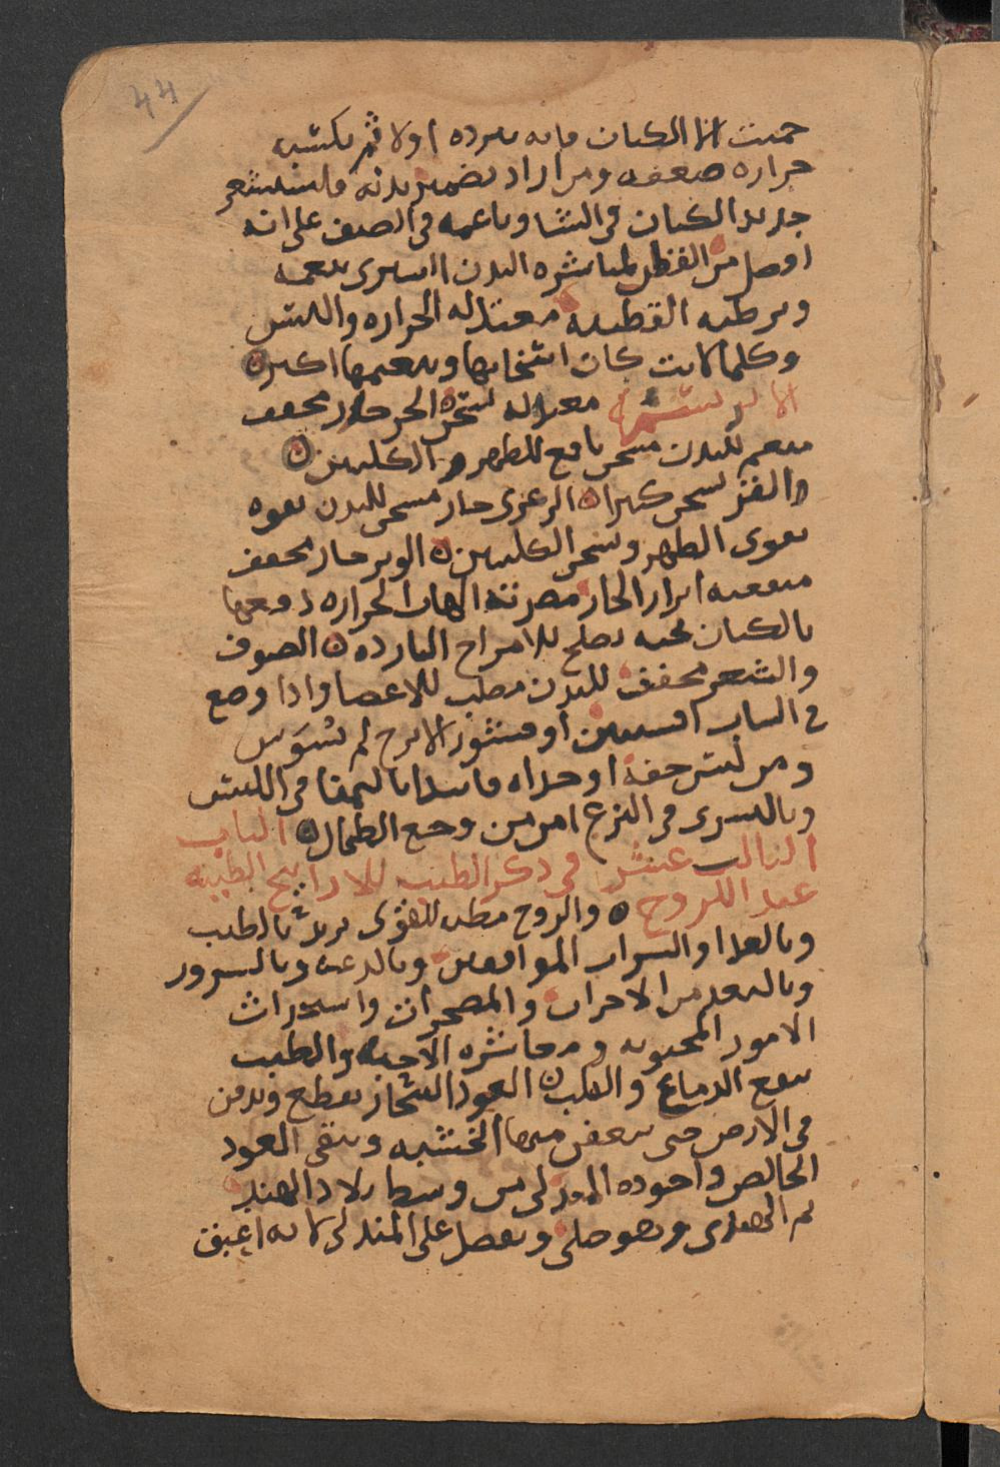 44
حميت الا الكتان فانه يبرده اولا ثم يكتسب
حراره ضعيفه ومن اراد تضمير بدنه فليستشعر
جديد الكتان في الشتا وناعمه في الصيف على انه
افضل من القطن لمباشره البدن
القطنيه معتدله الحراره واللبس
وكلما كانت كان اسخانها وتنعيمها اكثر
الابريسم معتدله الحر حار مجفف
منعم للبدن مسخن نافع للظهر والكليتين
والقز يسخن كثيرا المرعزى حار مسخن للبدن
يقوى الظهر ويسخن الكليتين الوبر حار مجفف
منفعته ابراد الحار مضرته الهاب الحراره دفعها
بالكتان تحته يصلح للامزاج البارده الصوف
والشعر مجفف للبدن مصلب للاعضا واذا وضع
في الثياب افسنتين او قشور الاترج لم تسوس
ومن لبس خفه او حذاه فابتدا باليمنا في اللبس
وباليسرى في النزع امن من وجع الطحال الباب
الثالث عشر في ذكر الطيب للاراييح الطيبه
عند الروح والروح مطيه للقوى تربد بالطيب
وبالغذا والشراب الموافقين وبالدعه وبالسرور
وبالبعد من الاحزان والمضجرات واستحداث
الامور المحبوبه ومعاشره الاحبه والطيب
ينفع الدماغ والقلب العود اشجار يقطع ويدفن
في الارض حتى يتعفن منها الخشبيه ويبقى العود
الخالص واجوده المندلى من وسط بلاد الهند
ثم الهندى وهو جبلى ويفضل على المندلى بانه اعبق